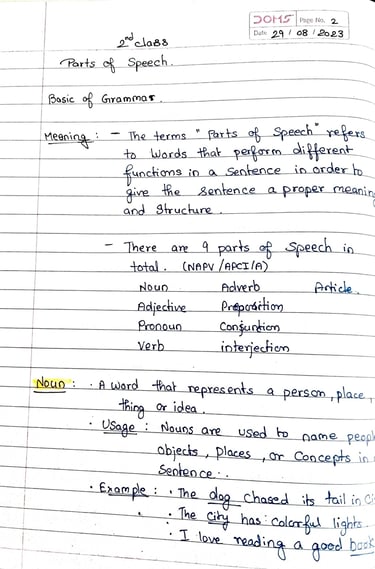 DOMS Page No. 2
Date 29 / 08 / 2023
2nd class
Parts of Speech.
Basic of Grammar.
Meaning : - The terms "Parts of Speech" refers
to words that perform different
functions in a sentence in order to
give the sentence a proper meaning
and structure.
- There are 9 parts of speech in
total. (NAPV/APCI/A)
Noun Adverb Article.
Adjective Preposition
Pronoun Conjuntion
Verb interjection
Noun : · A word that represents a person, place,
thing or idea.
· Usage : Nouns are used to name peopl
objects, places, or concepts in
Sentence..
· Example : · The dog chased its tail in Ci
· The city has colorful lights.
· I love reading a good book